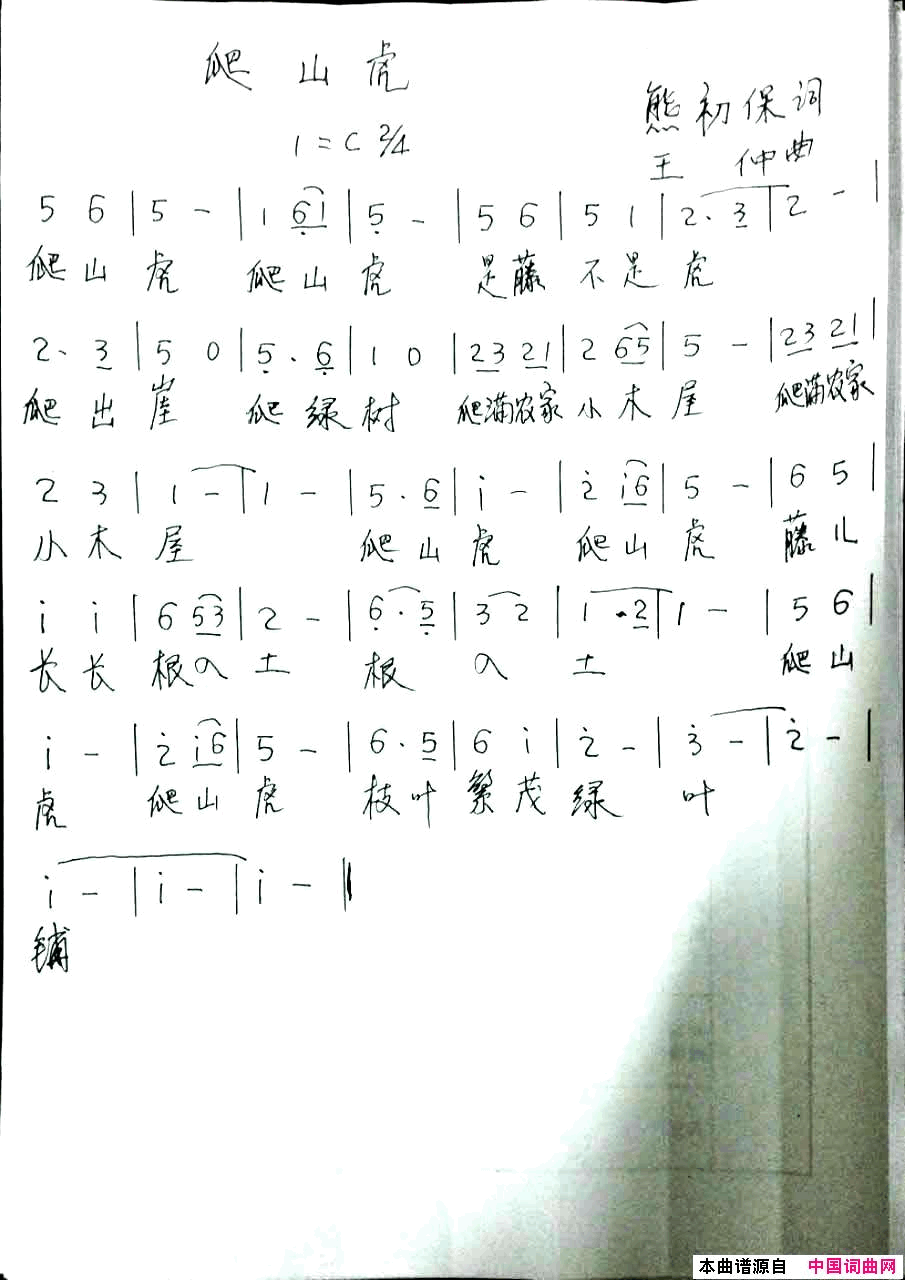 爬山虎
熊初保词
1=C 2/4
王仲曲
5 6 | 5 - | 1 6̣1 | 5̣ - | 5 6 | 5 1 | 2. 3 | 2 - |
爬山虎 爬山虎 是藤不是虎
2. 3 | 5 0 | 5̣. 6̣ | 1 0 | 23 21 | 2 65 | 5 - | 23 21 |
爬出崖 爬绿树 爬满农家小木屋 爬满农家
2 3 | 1 - | 1 - | 5. 6 | i - | 2̇ i6 | 5 - | 6 5 |
小木屋 爬山虎 爬山虎 藤儿
i i | 6 53 | 2 - | 6̣. 5̣ | 3 2 | 1 .2 | 1 - | 5 6 |
长长根入土 根入土 爬山
i - | 2̇ i6 | 5 - | 6. 5 | 6 i | 2̇ - | 3̇ - | 2̇ - |
虎 爬山虎 枝叶繁茂绿叶
i - | i - | i - ‖
铺
本曲谱源自 中国词曲网